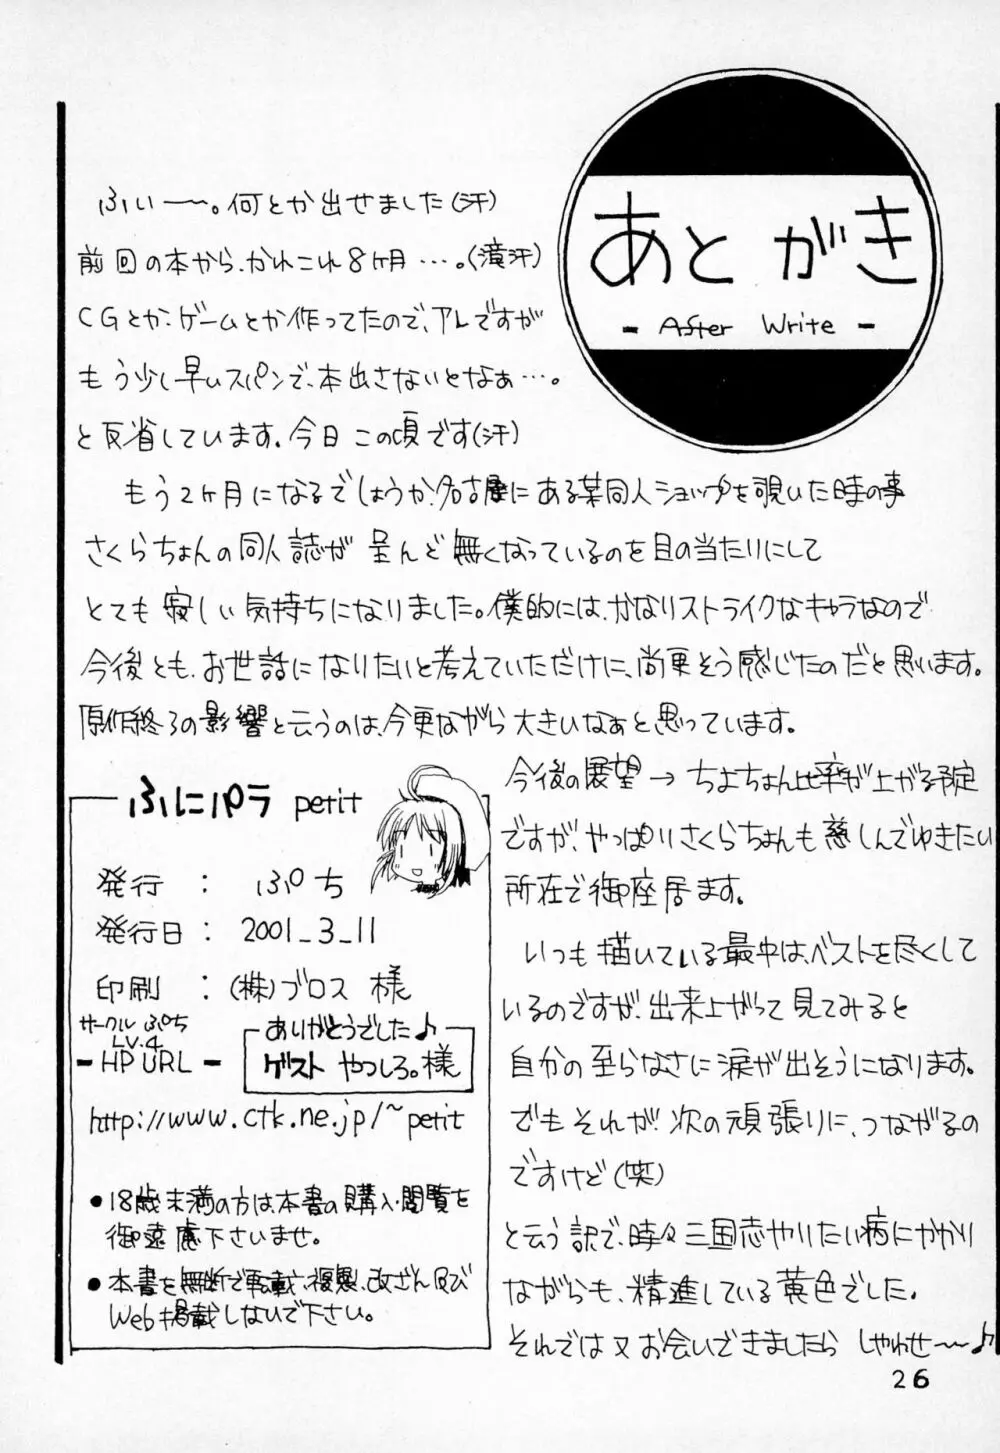 あとがき
- After Write -
ふい〜〜。何とか出せました(汗)
前回の本から、かれこれ8ヶ月…。(滝汗)
CGとか、ゲームとか作ってたので、アレですが
もう少し早いスパンで、本出さないとなぁ…。
と反省しています。今日この頃です(汗)
もう2ヶ月になるでしょうか、名古屋にある某同人ショップを覗いた時の事
さくらちょんの同人誌が呈んど無くなっているのを目の当たりにして
とても寂しい気持ちになりました。僕的には、かなりストライクなキャラなので
今後とも、お世話になりたいと考えていただけに、尚更そう感じたのだと思います。
原作終了の影響と云うのは、今更ながら大きいなぁと思っています。
今後の展望→ちよちょん比率が上がる予定
ですが、やっぱりさくらちょんも慈しんでゆきたい
所在で御座居ます。
いつも描いている最中は、ベストを尽くして
いるのですが、出来上がって見てみると
自分の至らなさに涙が出そうになります。
でもそれが次の頑張りに、つながるの
ですけど(笑)
と云う訳で、時々三国志やりたい病にかかり
ながらも、精進している黄色でした。
それでは又お会いできましたらしゃわせ〜〜♪
ふにパラ petit
発行 : ぷち
発行日 : 2001_3_11
印刷 : (株)ブロス 様
サークル ぷち
LV.4
ありがとうでした♪
ゲスト やつしろ。様
- HP URL -
http://www.ctk.ne.jp/~petit
●18歳未満の方は、本書の購入・閲覧を
御遠慮下さいませ。
●本書を無断で転載、複製、改ざん及び
Web掲載しないで下さい。
26